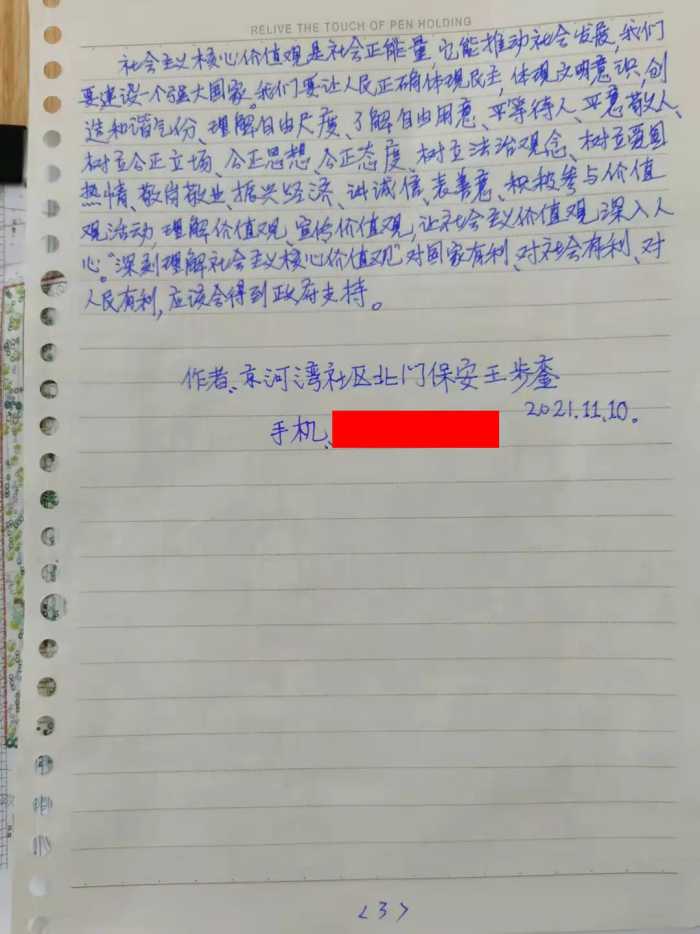 RELIVE THE TOUCH OF PEN HOLDING
社会主义核心价值观是社会正能量,它能推动社会发展,我们
要建设一个强大国家。我们要让人民正确体现民主,体现文明意识、创
造和谐气份、理解自由尺度、了解自由用意、平等待人、平意敬人、
树立公正立场、公正思想、公正态度、树立法治观念、树立爱国
热情、敬岗敬业振兴经济、讲诚信、表善意、积极参与价值
观活动,理解价值观、宣传价值观,让社会主义价值观深入人
心。“深刻理解社会主义核心价值观”对国家有利、对社会有利、对
人民有利,应该会得到政府支持。
作者、京河湾社区北门保安王步銮
2021.11.10。
手机、
<3>